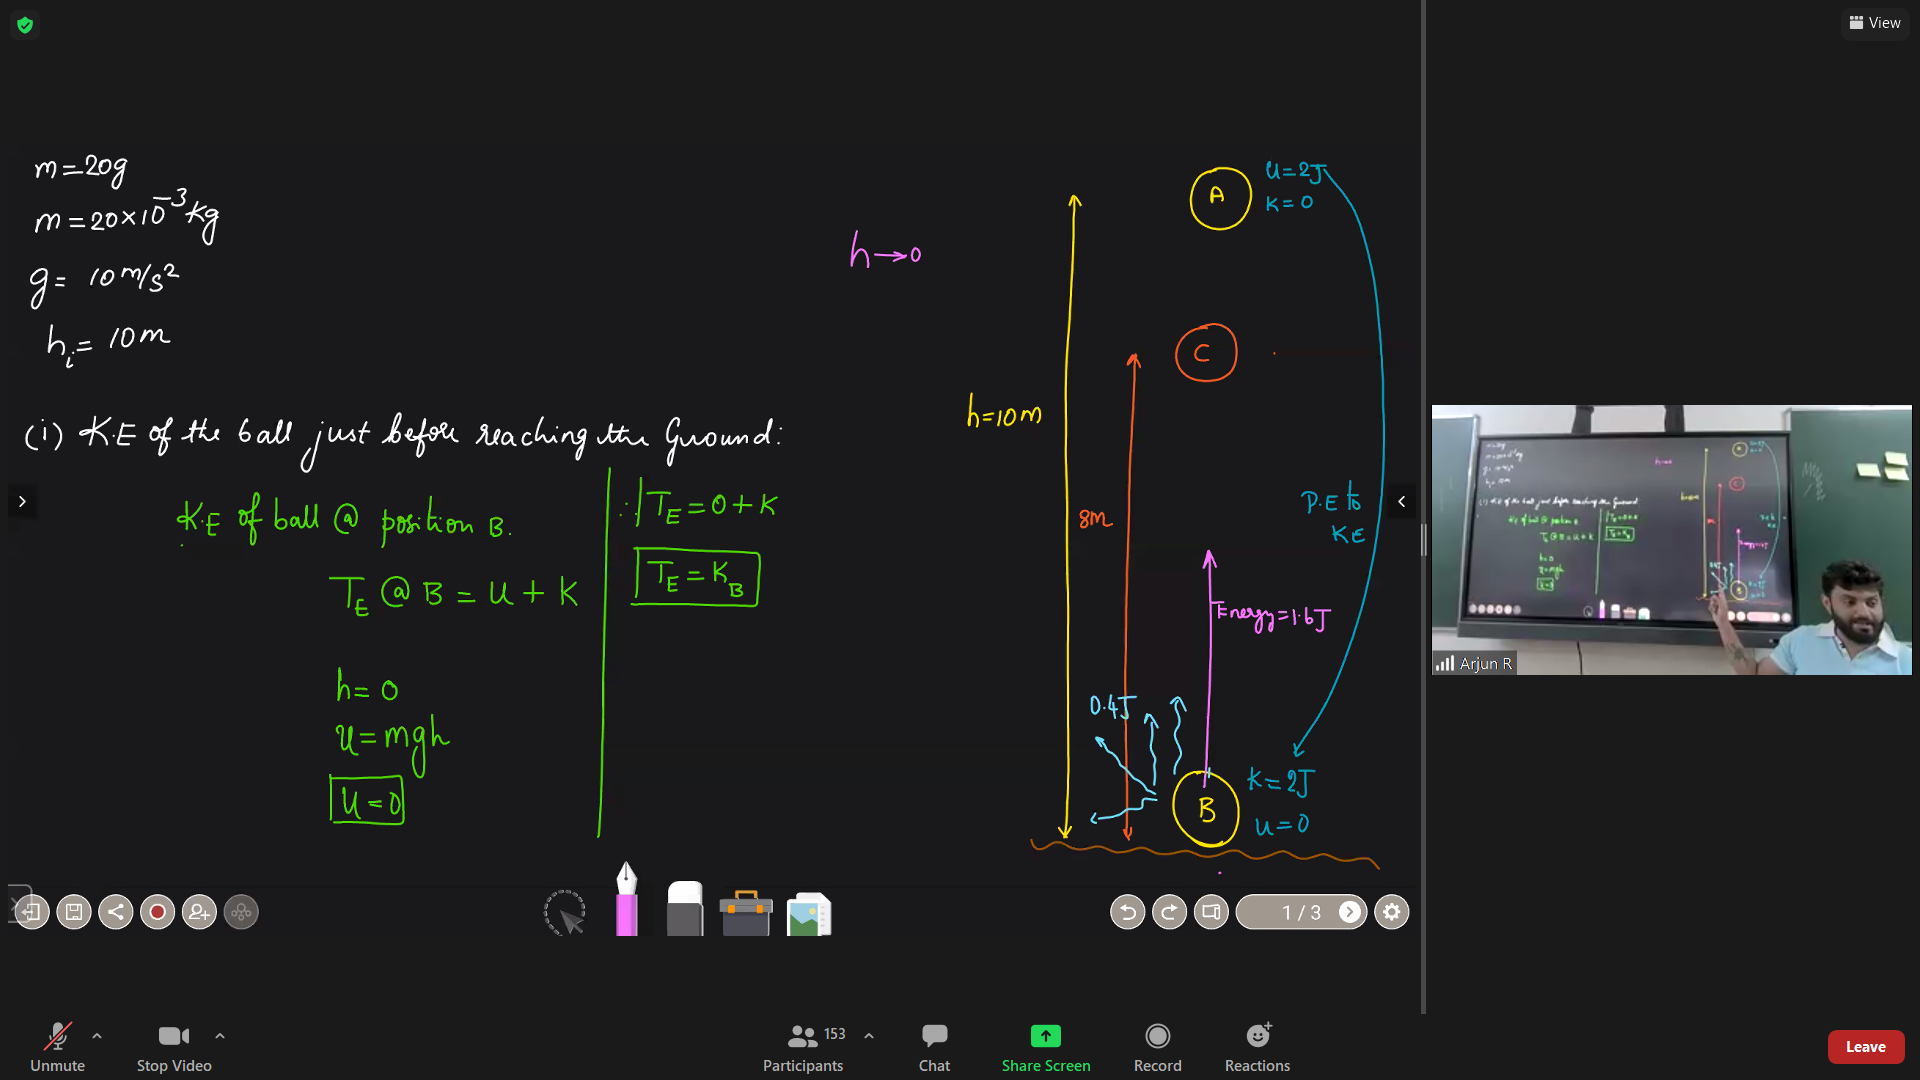 View
m=20g
m=20×10⁻³kg
g= 10m/s²
hᵢ= 10m
h→0
(i) K.E of the ball just before reaching the Ground:
K.E of ball @ position B.
T_E @ B = U + K
h= 0
u=mgh
U=0
∴ T_E = 0+K
T_E = K_B
A
U=2J
K=0
C
h=10m
8m
P.E to
KE
Energy=1.6J
0.4J
B
K=2J
u=0
1 / 3
Arjun R
Unmute
Stop Video
153
Participants
Chat
Share Screen
Record
Reactions
Leave